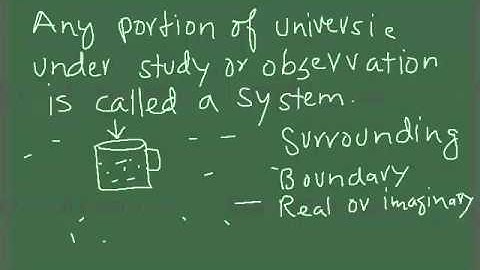 Any portion of universie
under study or observation
is called a system.
Surrounding
Boundary
Real or imaginary